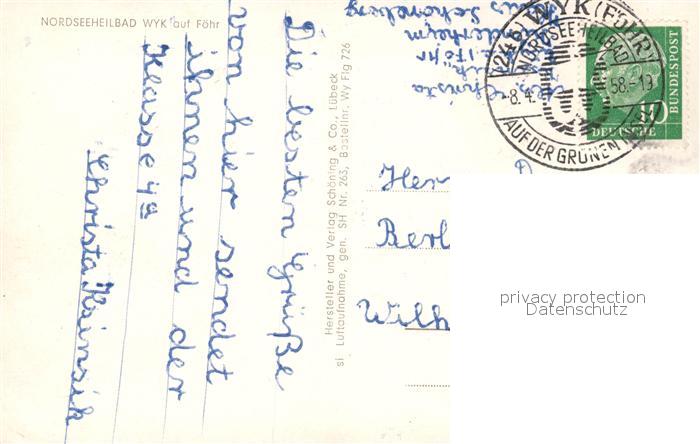 NORDSEEHEILBAD WYK auf Föhr
Die besten Grüße
von hier sendet
ihnen und der
Klasse 4a
Christa
Hersteller und Verlag Schöning & Co., Lübeck
si Luftaufnahme, gen. SH Nr. 263, Bestellnr. Wy Flg 726
Abs. Christa
Föhr
Haus Schöneberg
(24b) WYK (FÖHR)
NORDSEEHEILBAD
-8.4.58.-19
AUF DER GRÜNEN INSEL
DEUTSCHE
BUNDESPOST
10
Her
Berl
Wilh
privacy protection
Datenschutz